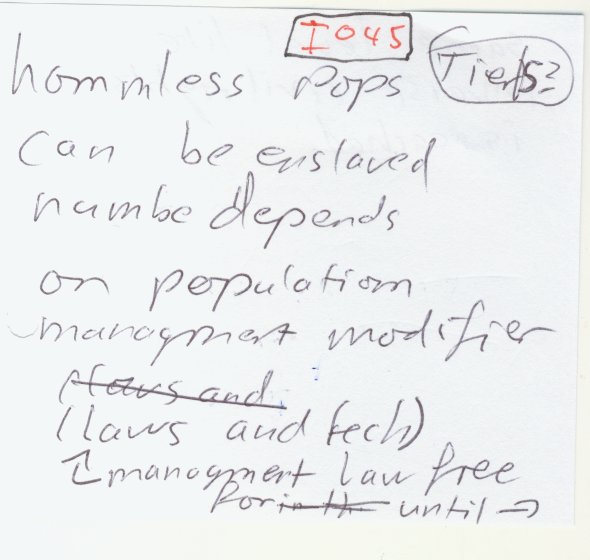 I045
hommless Pops Tier/s?
can be enslaved
numbe depends
on population
managment modifier
laws and
(laws and tech)
↳ managment law free
for in th until →